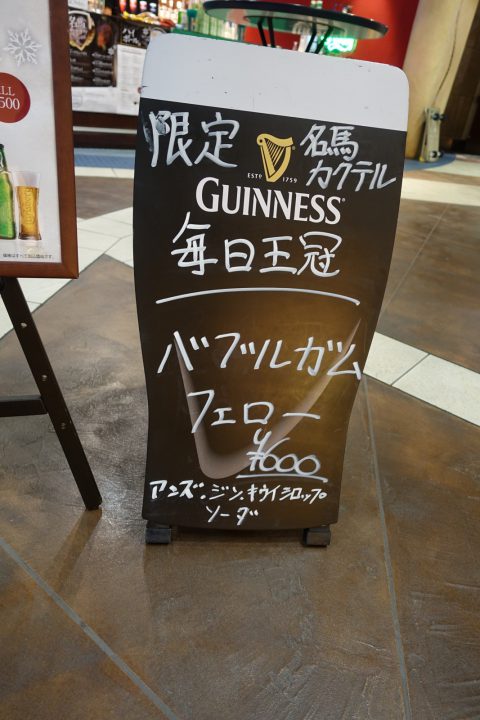 限定
名馬
カクテル
ESTD 1759
GUINNESS
毎日王冠
バブルガム
フェロー
¥600
アンズ.ジン.キウイシロップ
ソーダ
500